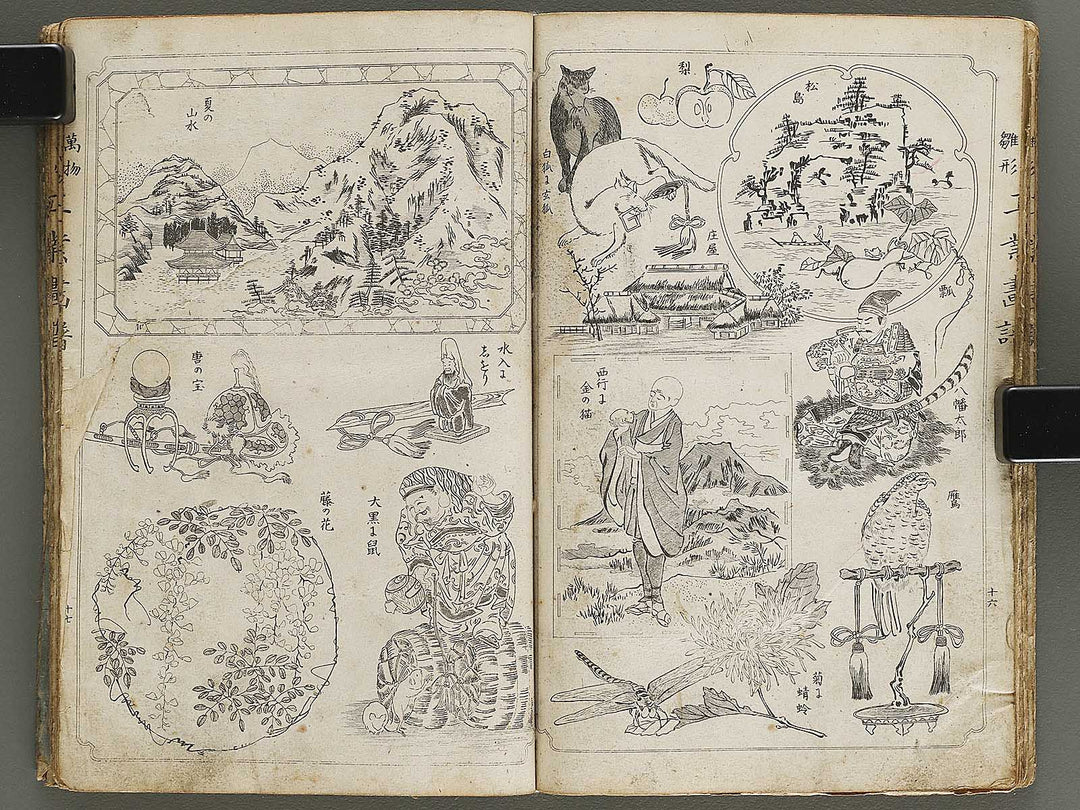 雛形
工業畫譜
松島
梨
白狐に玄狐
庄屋
瓢
八幡太郎
西行に
金の猫
鷹
菊に
蜻蛉
十六
夏の
山水
水入に
しをり
唐の宝
大黒に鼠
藤の花
萬物
工業畫譜
十七